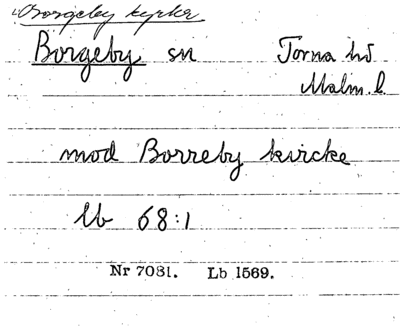 Borgeby kyrka
Borgeby sn Torna hd
Malm. l.
mod Borreby kircke
lb 68:1
Nr 7081. Lb 1569.